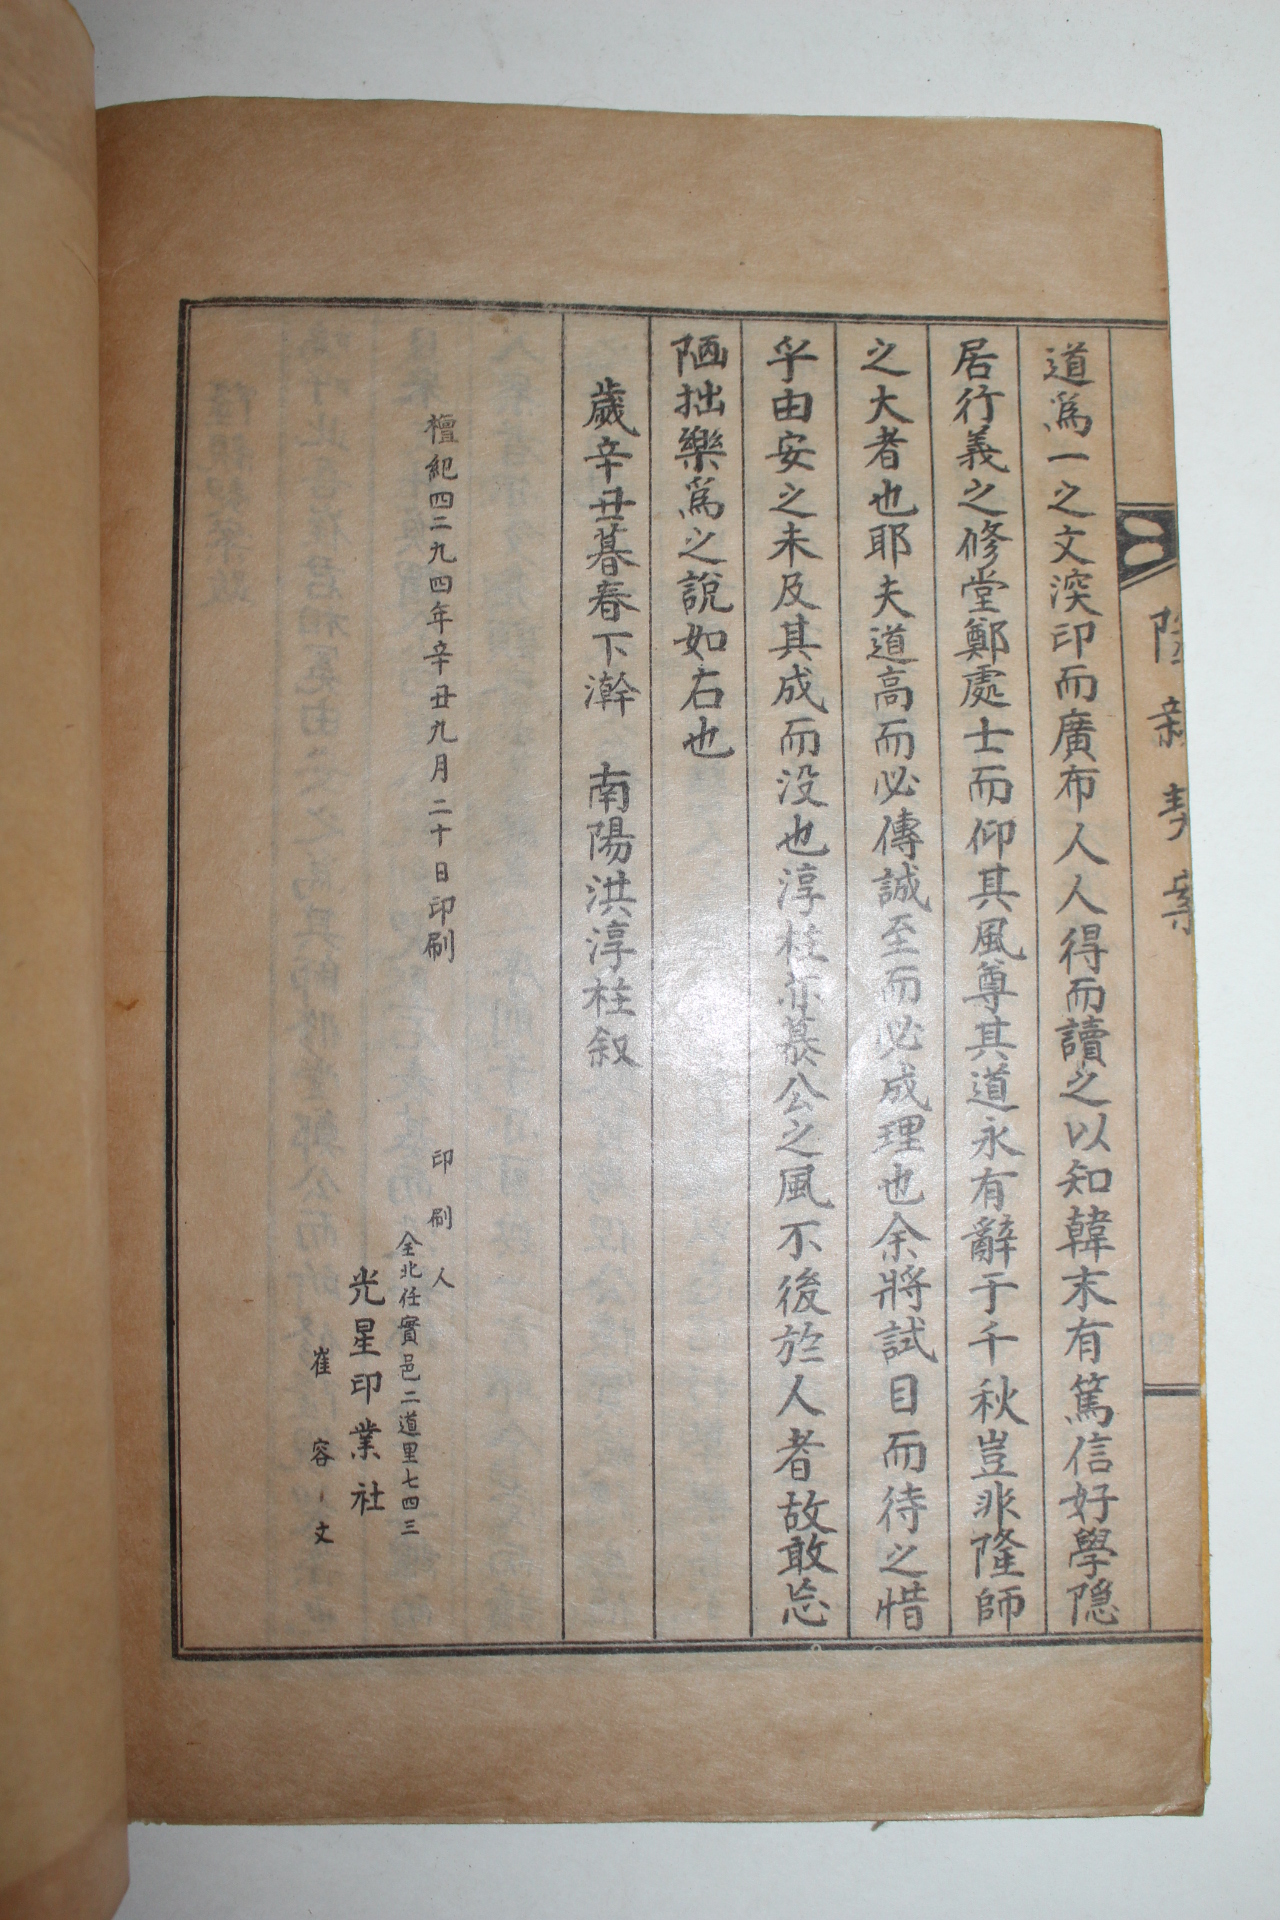 隆親契案
道爲一之文深印而廣布人人得而讀之以知韓末有篤信好學隐
居行義之修堂鄭處士而仰其風尊其道永有辭于千秋豈非隆師
之大者也耶夫道高而必傳誠至而必成理也余將試目而待之惜
乎由安之未及其成而没也淳柱亦慕公之風不後於人者故敢忘
陋拙樂爲之說如右也
歲辛丑暮春下澣 南陽洪淳柱叙
檀紀四二九四年辛丑九月二十日印刷
印刷人
全北任實邑二道里七四三
光星印業社
崔容文